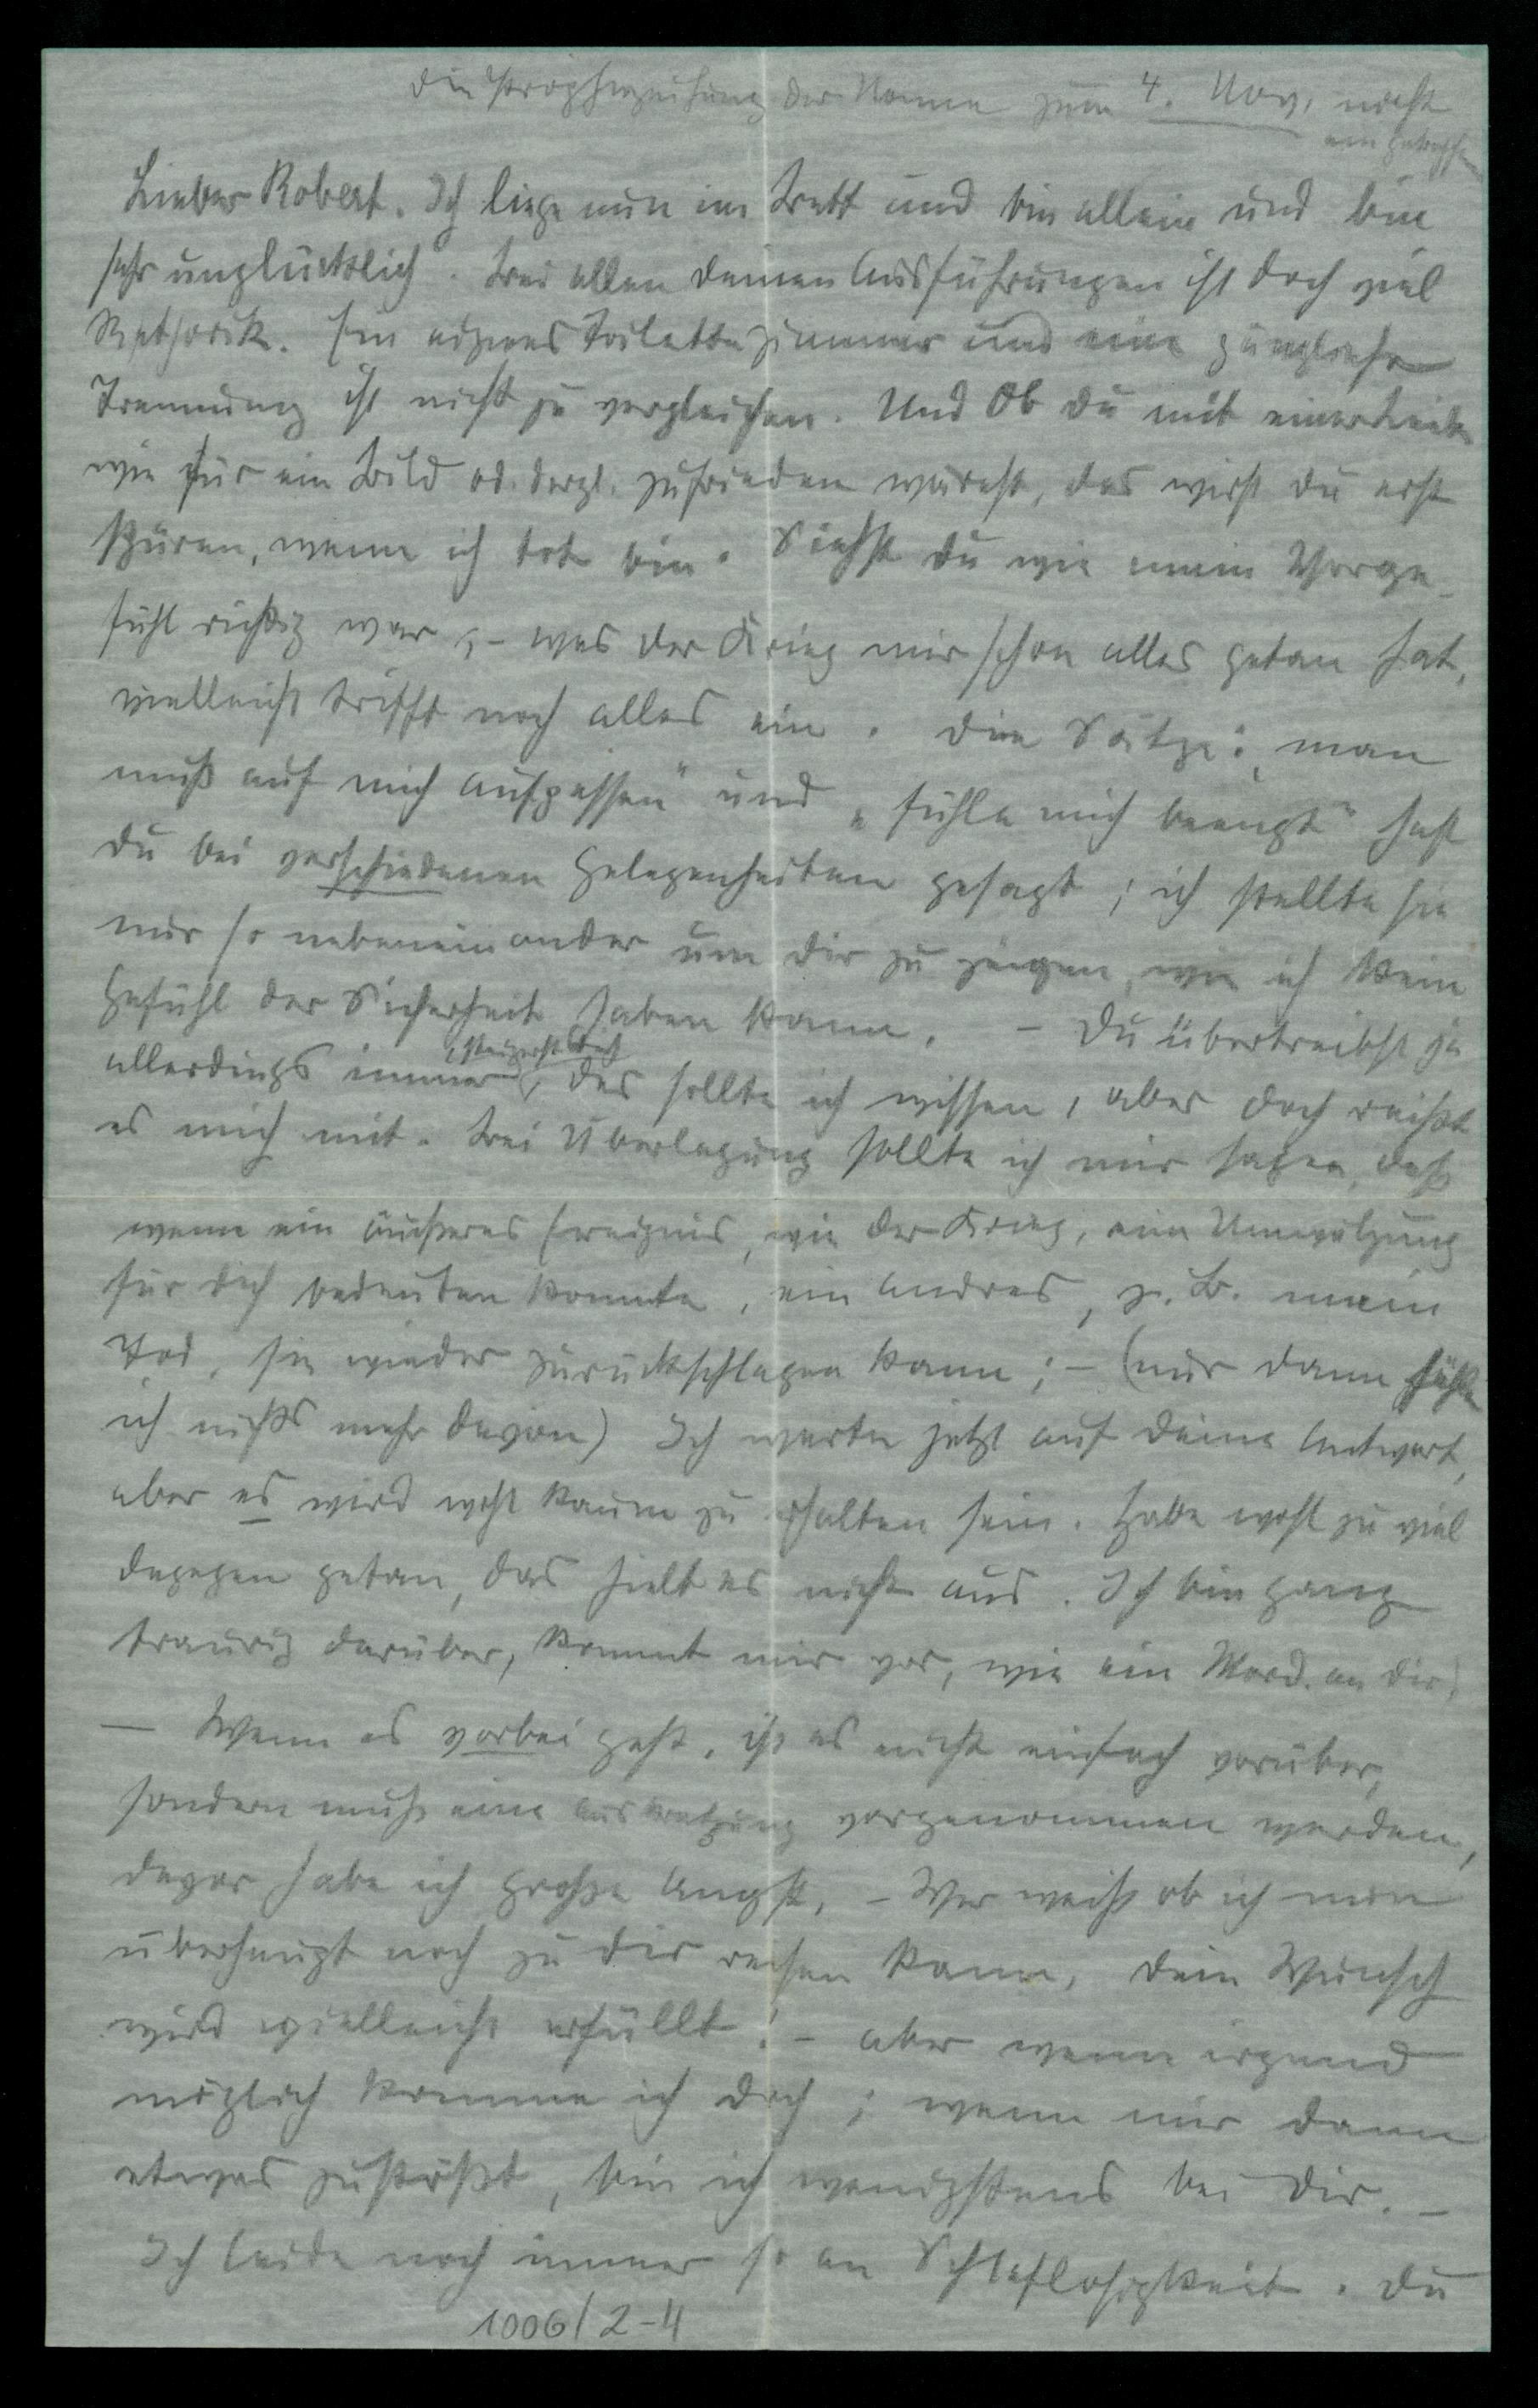 Die Prophezeihung der Nonne zum 4. Nov. nicht
eingetroffen
Lieber Robert. Ich liege nun im Bett und bin allein und bin
sehr unglücklich. Bei allen deinen Ausführungen ist doch viel
Rethorik. Ein eigenes Toilettezimmer und eine gänzliche
Trennung ist nicht zu vergleichen. Und Ob du mit einer Liebe
wie für ein Bild od. dergl. zufrieden wärest, das wirst du erst
spüren, wenn ich tot bin. Siehst du wie mein Vorge-
fühl richtig war, – was der Krieg mir schon alles getan hat,
vielleicht trifft noch alles ein. Die Sätze: „man
muß auf mich aufpassen" und „fühle mich beengt" hast
du bei verschiedenen Gelegenheiten gesagt; ich stellte sie
nur so nebeneinander um dir zu zeigen, wie ich kein
Gefühl der Sicherheit haben kann. – Du übertreibst ja
allerdings immer, das sollte ich wissen, aber doch reißt
, steigerst dich
es mich mit. Bei Überlegung sollte ich mir sagen, daß
wenn ein äußeres Ereignis, wie der Krieg, eine Umwälzung
für dich bedeuten konnte, ein andres, z. B. mein
Tod, sie wieder zurückschlagen kann; – (nur dann fühle
ich nichts mehr davon) Ich warte jetzt auf deine Antwort,
aber es wird wohl kaum zu erhalten sein. Habe wohl zu viel
dagegen getan, das hielt es nicht aus. Ich bin ganz
traurig darüber, kommt mir vor, wie ein Mord. an dir!
– Wenn es vorbei geht, ist es nicht einfach vorüber,
sondern muß eine auskratzung vorgenommen werden,
davor habe ich große Angst. – Wer weiß ob ich nun
überhaupt noch zu dir reisen kann, dein Wunsch
wird vielleicht erfüllt! – aber wenn irgend
möglich komme ich doch; wenn mir dann
etwas zustößt, bin ich wenigstens bei dir. –
Ich leide noch immer so an Schlaflosigkeit. Du
1006/2-4